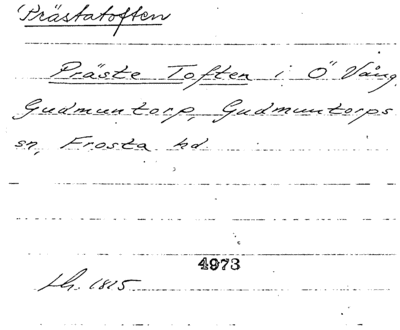 Prästatoften
Präste Toften i Ö Vång,
Gudmuntorp, Gudmuntorps
sn, Frosta hd
4973
1815